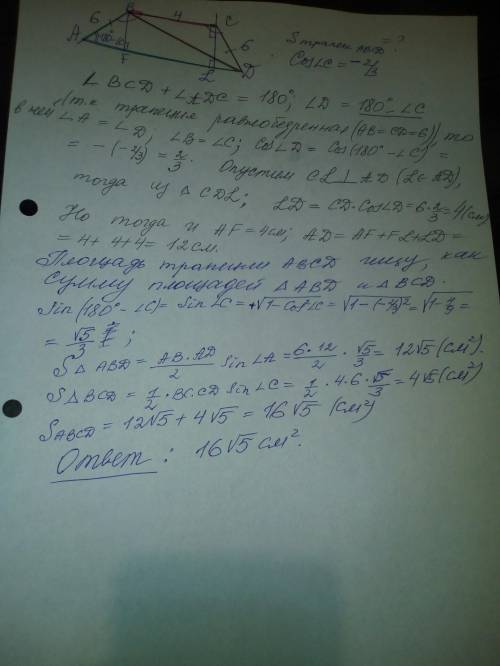 B 4 C
6 6
A 180°-∠C F L D
S трапец ABCD = ?
Cos∠C = -2/3
∠BCD + ∠ADC = 180°; ∠D = 180° - ∠C
(т.к. трапеция равнобедренная (AB = CD = 6), то
в ней ∠A = ∠D, ∠B = ∠C; Cos∠D = Cos(180° - ∠C) =
= -(-2/3) = 2/3. Опустим CL⊥AD (L∈AD),
тогда из △CDL; LD = CD·Cos∠D = 6·2/3 = 4(см)
Но тогда и AF = 4см; AD = AF + FL + LD =
= 4 + 4 + 4 = 12 см.
Площадь трапеции ABCD ищу, как
сумму площадей △ABD и △BCD.
Sin(180° - ∠C) = Sin∠C = +√1-Cos²∠C = √1-(-2/3)² = √1-4/9 =
= √5/3;
S△ABD = AB·AD/2 Sin∠A = 6·12/2 · √5/3 = 12√5 (см²).
S△BCD = 1/2·BC·CD Sin∠C = 1/2·4·6·√5/3 = 4√5 (см²)
SABCD = 12√5 + 4√5 = 16√5 (см²)
Ответ: 16√5 см².